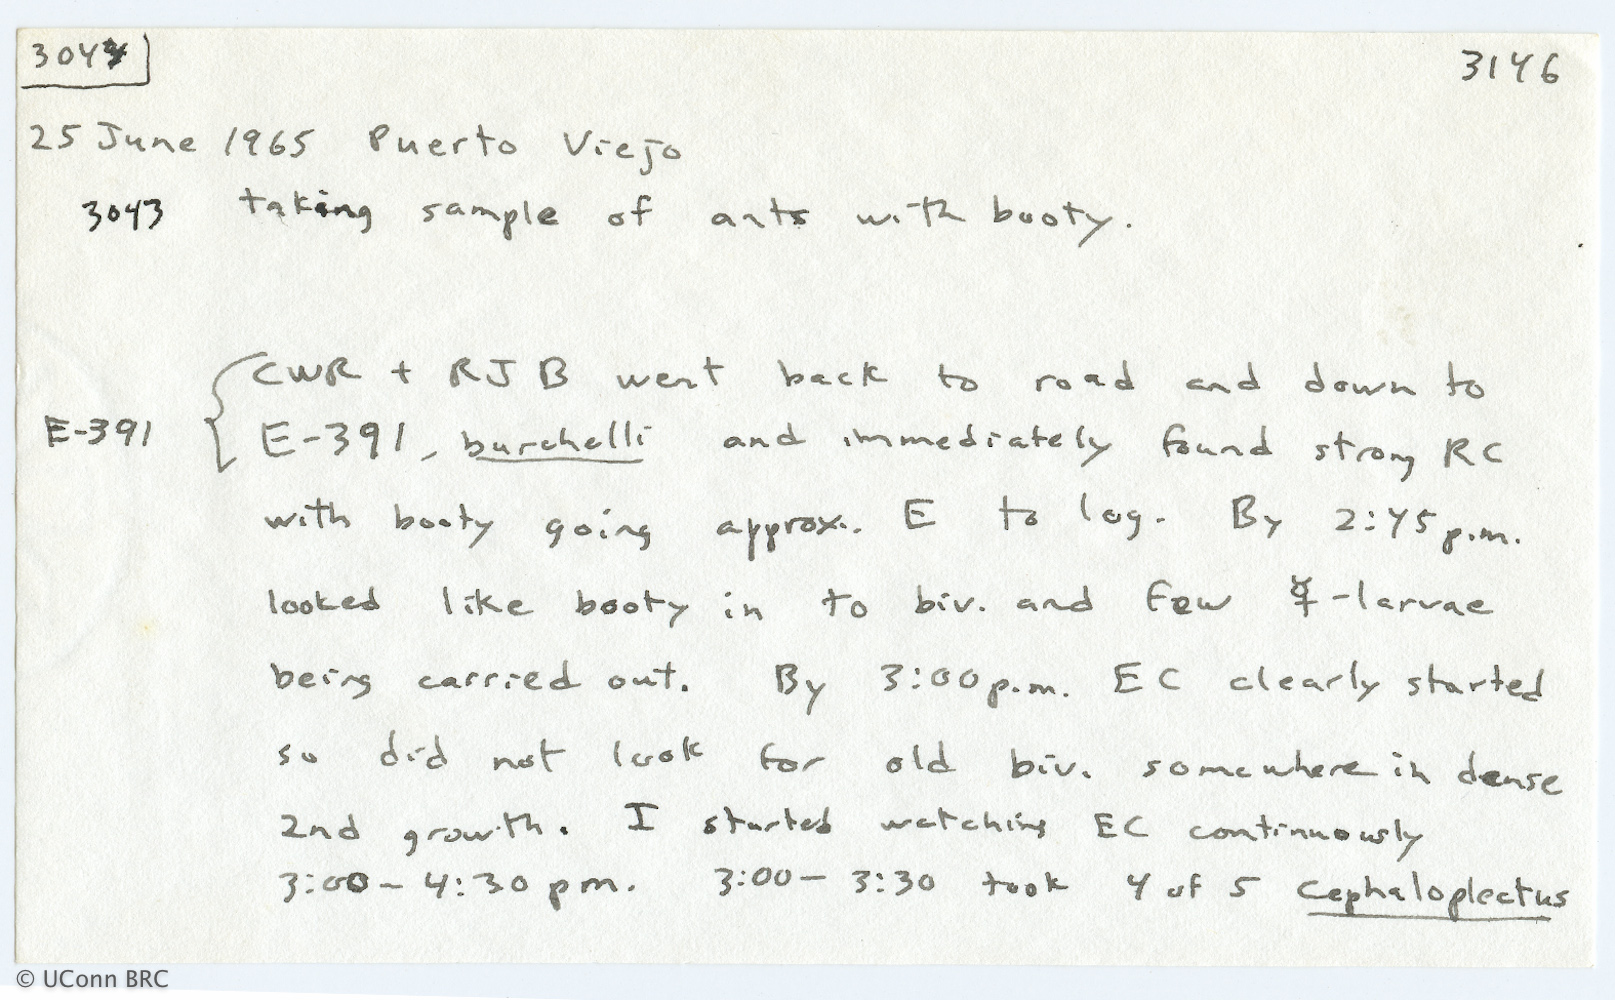 3044
3146
25 June 1965 Puerto Viejo
3043 taking sample of ants with booty.
CWR + RJB went back to road and down to
E-391 E-391, burchelli and immediately found strong RC
with booty going approx. E to log. By 2:45 p.m.
looked like booty in to biv. and few ☿-larvae
being carried out. By 3:00 p.m. EC clearly started
so did not look for old biv. somewhere in dense
2nd growth. I started watching EC continuously
3:00 - 4:30 pm. 3:00 - 3:30 took 4 of 5 Cephaloplectus
© UConn BRC